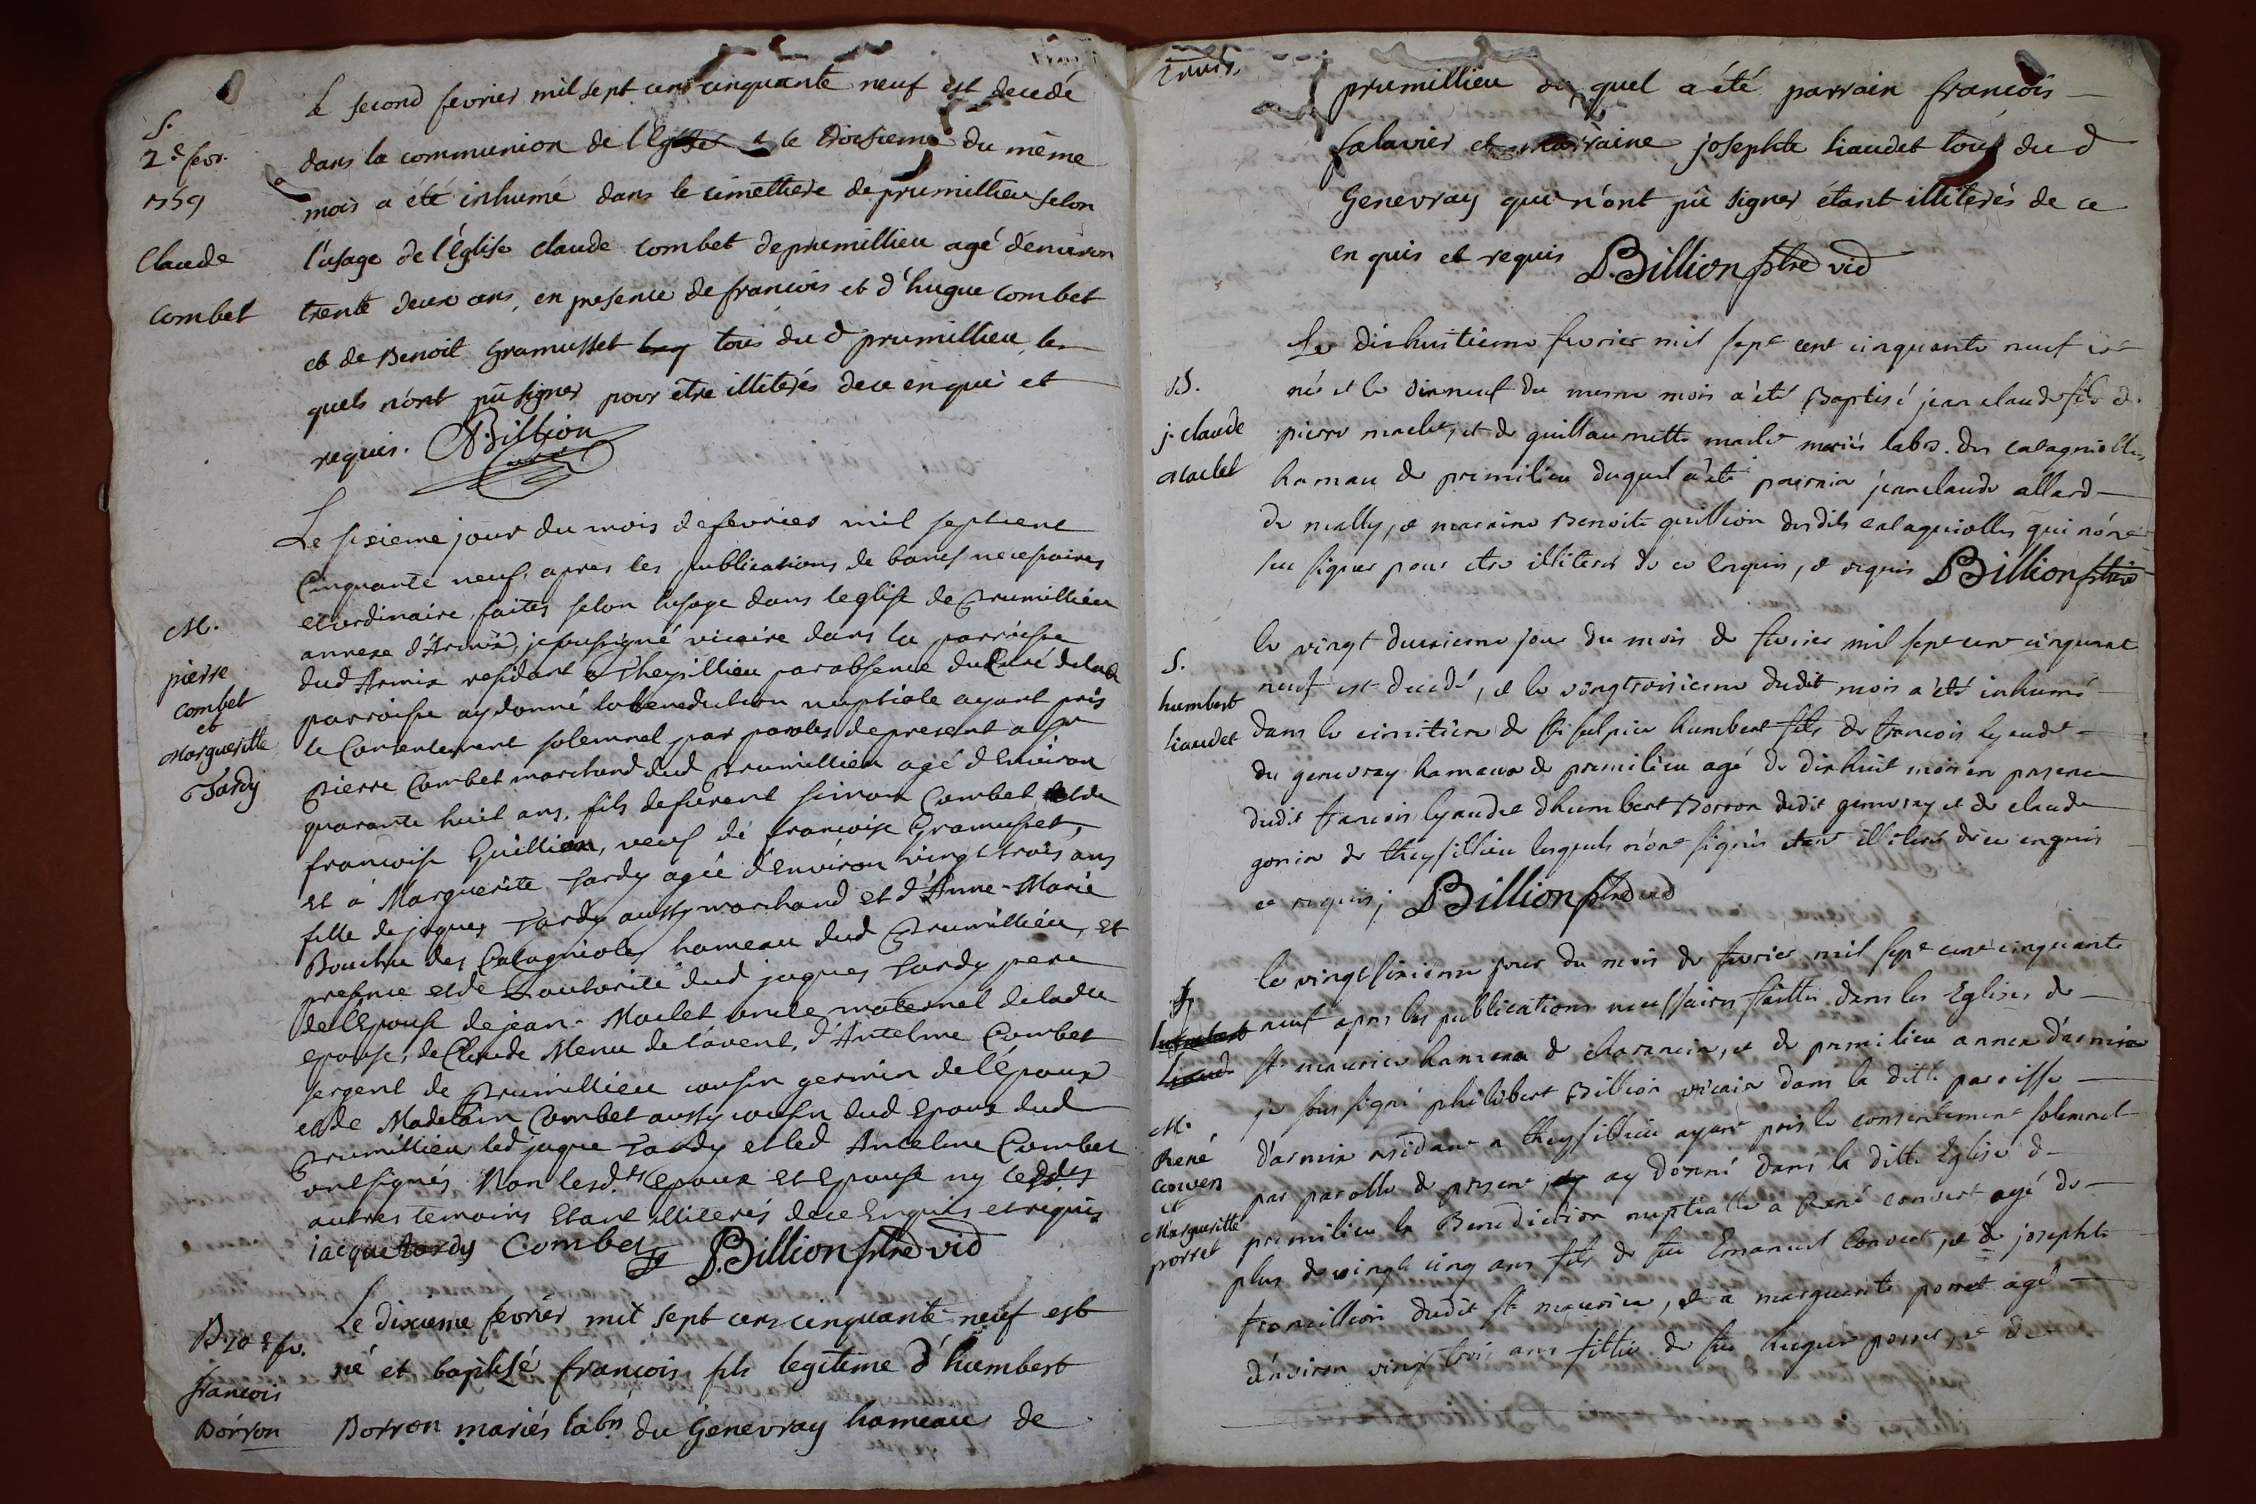 S.
2e fevr.
1759
Claude
Combet
le second fevrier mil sept cens cinquante neuf est decedé
dans la communion de l'Eglise et le troisieme du même
mois a été inhumé dans le cimettiere de prumillieu selon
l'usage de l'Église claude combet de prumillieu agé d'environ
trente deux ans, en presence de francois et d'hugue combet
et de Benoit Gramusset tous du d prumillieu les
quels n'ont pû signer pour etre illiterés de ce enquis et
requis. Billion
M.
pierre
combet
et
Margueritte
Tardy
Le sixieme jour du mois de fevrier mil sept cent
Cinquante neuf, apres les publications de bancs necessaires
et ordinaire faites selon l'usage dans leglise de Prumillieu
annexe d'Armix, je soussigné vicaire dans la parroisse
dud Armix residant a Theysillieu par absence du Curé de lad
parroisse ay donné la benediction nuptiale ayant pris
le Consentement solemnel par paroles de present a Sr
Pierre Combet marchand dud Prumillieu agé d'Environ
quarante huit ans, fils de furent Simon Combet et de
francoise Guillion, veuf de francoise Gramusset,
et a Marguerite Tardy agée d'Environ vingt trois ans
fille de jaques Tardy aussy marchand et d'Anne-Marie
Bouchu des Catagnioles hameau dud Prumillieu, et
presence et de L'authorité dud jaques Tardy pere
de l'Epouse de jean-Maclet oncle maternel de ladte
epouse, de Claude Menu de l'avent, d'Antelme Combet
sergent de Prumillieu cousin germin de l'époux
et de Madelain Combet aussy cousin dud Epoux dud
Prumillieu led jaque Tardy et led Antelme Combet
ont signés Non lesdts Epoux et Epouse ny lesdts
autres temoins Etant illiterés de ce Enquis et requis
iacque tardy Combet P. Billion ptre vic
B. 10e fv.
francois
Borron
Le dixieme fevrier mil sept cens cinquante neuf est
né et baptisé francois fils legitime d'humbert
Borron mariés labrs du Genevray hameau de
prumillieu du quel a été parrain francois
falavier et marraine josephte Liaudet tous du d
Genevray qui n'ont pû signer étant illiterés de ce
en quis et requis P. Billion ptre vic
B.
j. claude
Maclet
Le dixhuitieme fevrier mil sept cent cinquante neuf est
né et le dixneuf du meme mois a été Baptisé jean claude fils de
pierre maclet, et de guillaumette maclet mariés labos. des catagniolles
hameau de premilieu duquel a été parrain jean claude allard
de meally, et marraine Benoite guillion desdits catagniolles qui n'ont
su signer pour etre illiterés de ce enquis, et requis P. Billion ptre vic
S.
humbert
Liaudet
le vingt deuxieme jour du mois de fevrier mil sept cent cinquante
neuf est decedé, et le vingtroisieme dudit mois a été inhumé
dans le cimitiere de St sulpice humbert fils de francois Lyaudet
du genevray hameau de premilieu agé de dixhuit mois en presence
dudit francois lyaudet d'humbert Borron dudit genevray et de claude
gonin de theysillieu lesquels n'ont signés etant illiterés de ce enquis
et requis; P. Billion ptre vic
M.
René
convert
et
Margueritte
porret
le vingtsixieme jour du mois de fevrier mil sept cent cinquante
neuf apres les publications necessaires faittes dans les Eglises de
St maurice hameau de charancin, et de premilieu annexe d'armix
je sous signé philibert Billion vicaire dans la ditte paroisse
d'armix residant a theysillieu ayant pris le consentement solemnel
par parolle de present, ay donné dans la ditte Eglise de
premilieu la Benediction nuptialle a René convert agé de
plus de vingt cinq ans fils de feu Emanuel convert, et de josephte
francillion dudit St maurice, et a marguerite porret agé
d'environ vingt trois ans fille de feu hugue porret, et de